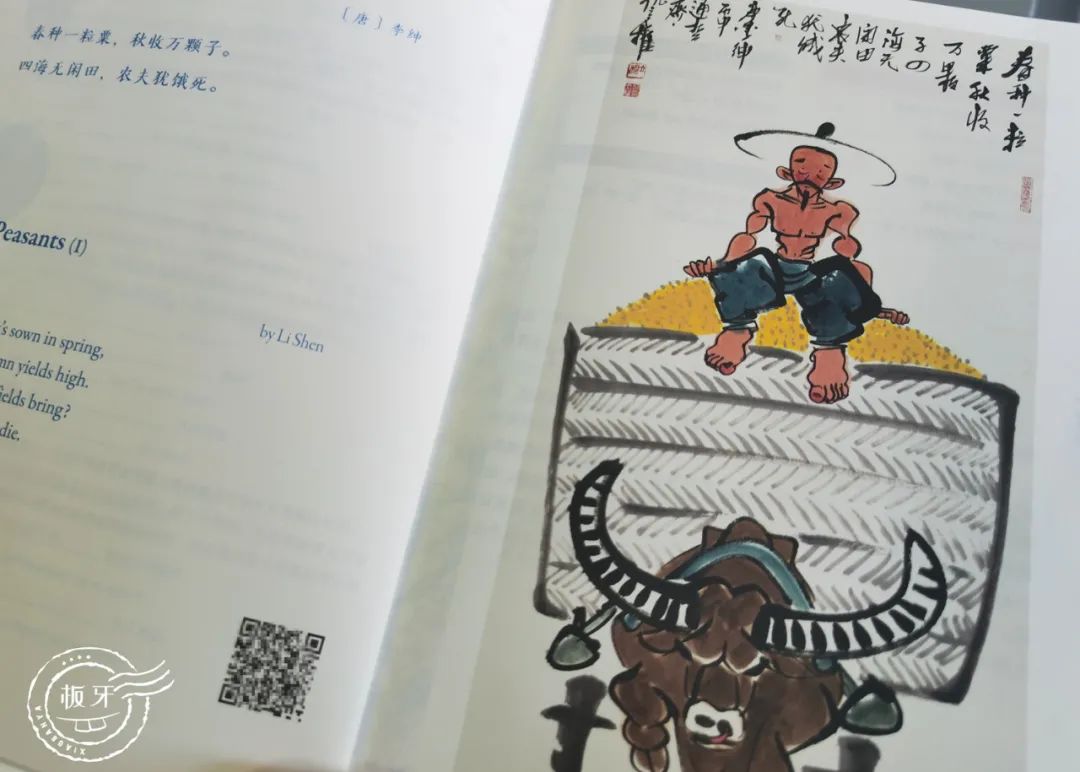 〔唐〕李绅
春种一粒粟，秋收万颗子。
四海无闲田，农夫犹饿死。
Peasants (I)
by Li Shen
's sown in spring,
mn yields high.
ields bring?
die.
春种一粒
粟秋收
万颗
子四
海无
闲田
农夫
犹饿
死
板牙
XIAOBANYA